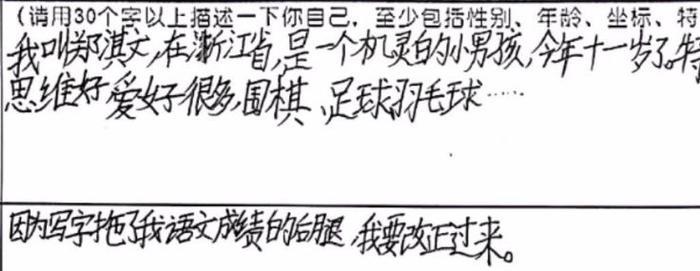 （请用30个字以上描述一下你自己，至少包括性别、年龄、坐标、特
我叫郑淇文，在浙江省，是一个机灵的小男孩，今年十一岁了。特
思维好爱好很多，围棋、足球、羽毛球……
因为写字拖了我语文成绩的后腿，我要改正过来。